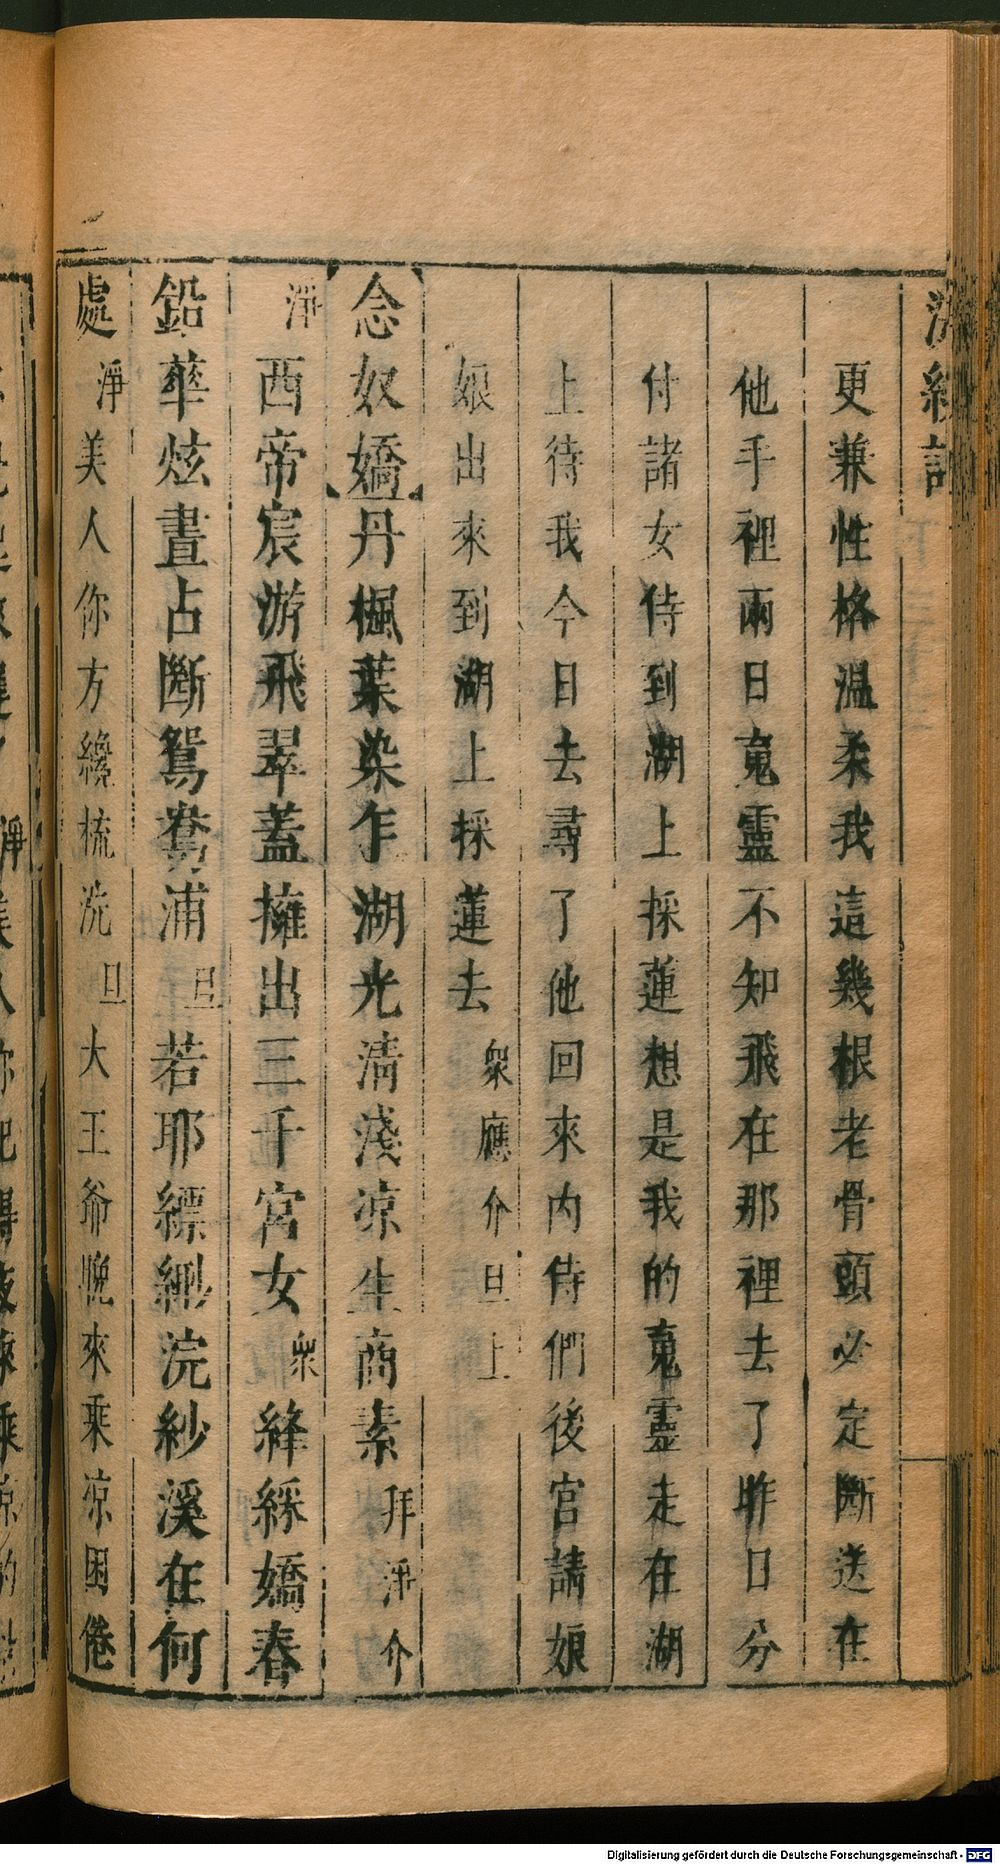 浣紗記
更兼性格温柔我這幾根老骨頭必定斷送在
他手裡兩日䰟靈不知飛在那裡去了昨日分
付諸女侍到湖上採蓮想是我的䰟靈走在湖
上待我今日去尋了他回來内侍們後宮請娘
娘出來到湖上採蓮去衆應介旦上
念奴嬌丹楓葉染乍湖光淸淺凉生商素拜淨介
淨西帝宸游飛翠蓋擁出三千宮女衆絳綵嬌春
鉛華炫晝占斷鴛鴦浦旦若耶縹緲浣紗溪在何
處淨美人你方纔梳洗旦大王爺晚來乘凉困倦
Digitalisierung gefördert durch die Deutsche Forschungsgemeinschaft - DFG